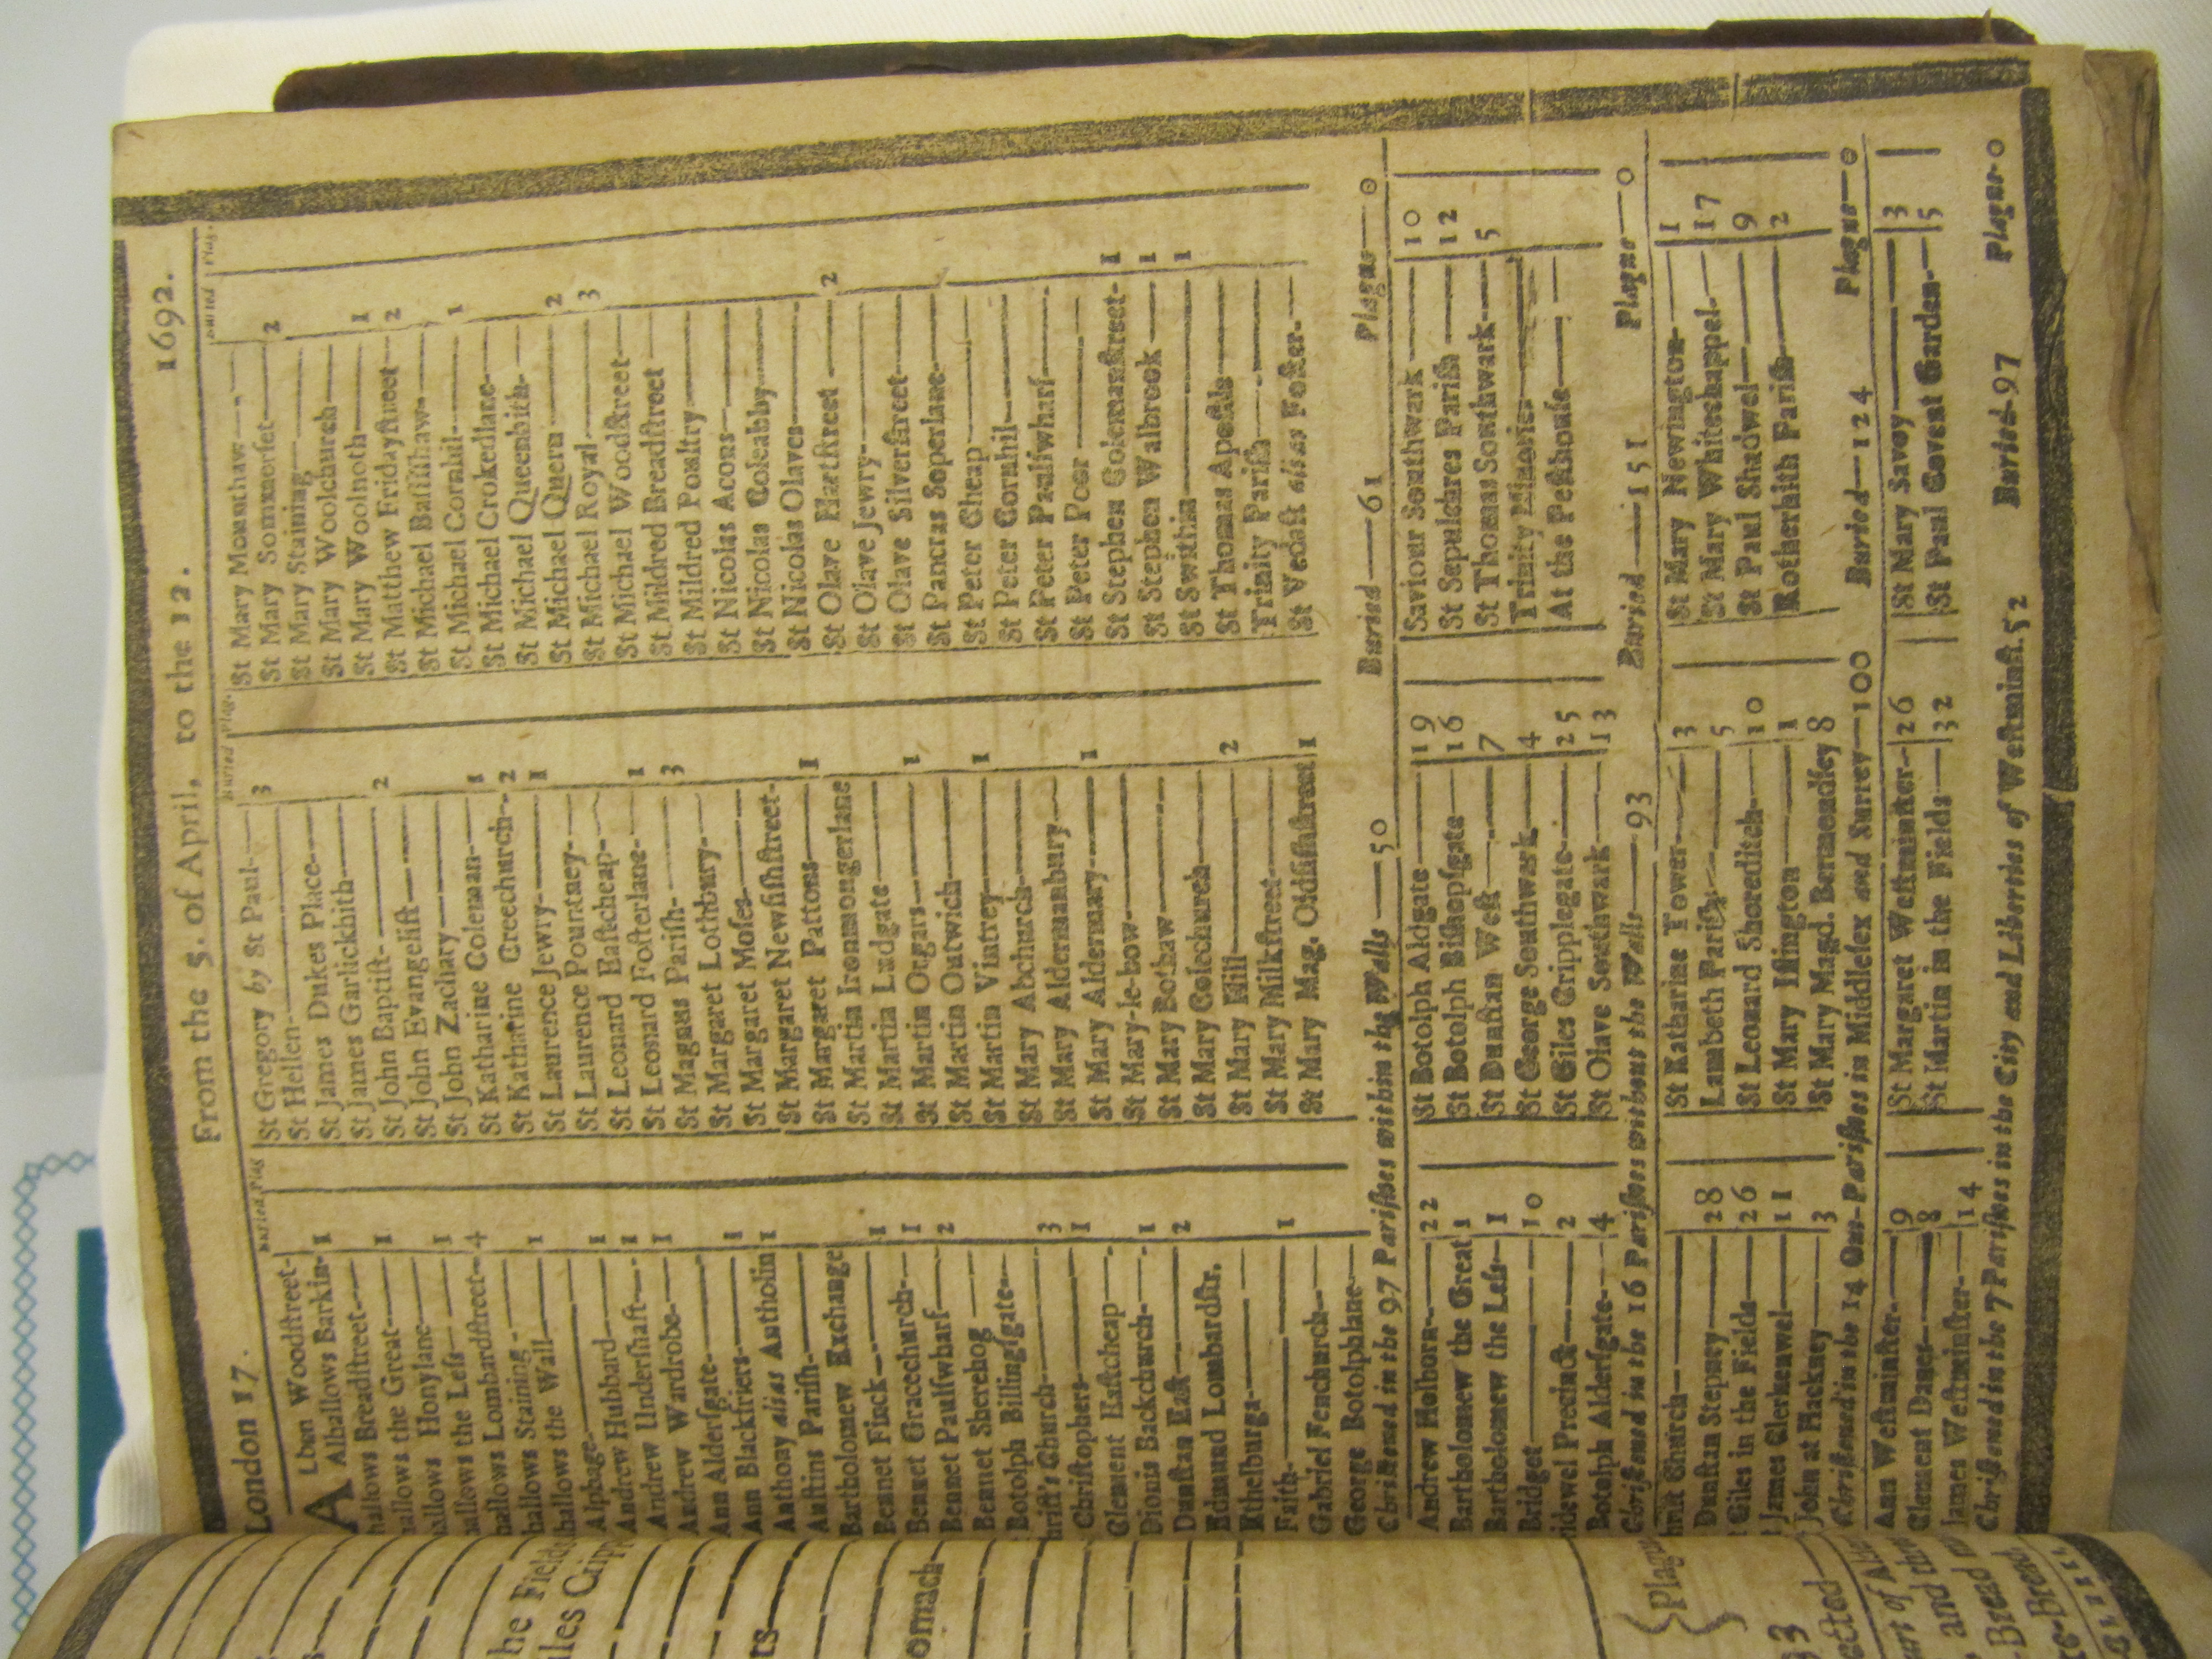 London 17.
From the 5. of April, to the 12.
1692.
Buried Plag
ALban Woodſtreet-
Alhallows Barkin- 1
hallows Breadſtreet
hallows the Great 1
hallows Honylane
hallows the Leſs 1
hallows Lombardſtreet 4
hallows Staining
hallows the Wall 1
Alphage
Andrew Hubbard 1
Andrew Underſhaft 1
Andrew Wardrobe 1
Ann Alderſgate
Ann Blackfriers 1
Anthony alias Antholin 1
Auſtins Pariſh
Bartholomew Exchange
Bennet Finck 1
Bennet Gracechurch 1
Bennet Paulſwharf 2
Bennet Sherehog
Botolph Billingſgate
hriſt's Church 3
Chriſtophers 1
Clement Eaſtcheap
Dionis Backchurch 1
Dunſtan Eaſt 2
Edmund Lombardſtr.
Ethelburga
Faith 1
Gabriel Fenchurch
George Botolphlane
Buried Plag.
St Gregory by St Paul 3
St Hellen
St James Dukes Place
St James Garlickhith
St John Baptiſt 2
St John Evangeliſt
St John Zachary
St Katharine Coleman 1
St Katharine Creechurch 2
St Laurence Jewry 1
St Laurence Pountney
St Leonard Eaſtcheap
St Leonard Foſterlane 1
St Magnus Pariſh 3
St Margaret Lothbury
St Margaret Moſes
St Margaret Newfiſhſtreet
St Margaret Pattons 1
St Martin Ironmongerlane
St Martin Ludgate
St Martin Orgars 1
St Martin Outwich
St Martin Vintrey 1
St Mary Abchurch
St Mary Aldermanbury
St Mary Aldermary 1
St Mary-le-bow
St Mary Bothaw
St Mary Colechurch
St Mary Hill 2
St Mary Milkſtreet
St Mary Mag. Oldfiſhſtreet 1
Buried Plag.
St Mary Mounthaw
St Mary Sommerſet 2
St Mary Staining
St Mary Woolchurch
St Mary Woolnoth 1
St Matthew Fridayſtreet 2
St Michael Baſſiſhaw
St Michael Cornhil 1
St Michael Crokedlane
St Michael Queenhith
St Michael Quern 2
St Michael Royal 3
St Michael Woodſtreet
St Mildred Breadſtreet
St Mildred Poultry
St Nicolas Acons
St Nicolas Coleabby
St Nicolas Olaves
St Olave Hartſtreet 2
St Olave Jewry
St Olave Silverſtreet
St Pancras Soperlane
St Peter Cheap
St Peter Cornhil
St Peter Paulſwharf
St Peter Poor
St Stephen Colemanſtreet 1
St Stephen Walbrook 1
St Swithin 1
St Thomas Apoſtle
Trinity Pariſh
St Vedaſt alias Foſter
Chriſtned in the 97 Pariſhes within the Walls—50 Buried—61 Plague—0
Andrew Holborn 22
Bartholomew the Great 1
Bartholomew the Leſs 1
Bridget 10
idewel Precinct 2
Botolph Alderſgate 4
St Botolph Aldgate 19
St Botolph Biſhopſgate 16
St Dunſtan Weſt 7
St George Southwark 4
St Giles Cripplegate 25
St Olave Southwark 13
Saviour Southwark 10
St Sepulchres Pariſh 12
St Thomas Southwark 5
Trinity Minories
At the Peſthouſe
Chriſtned in the 16 Pariſhes without the Walls—93 Buried—151 Plague—0
hriſt Church
Dunſtan Stepney 28
Giles in the Fields 26
James Clerkenwel 11
John at Hackney 3
St Katharine Tower 3
Lambeth Pariſh 5
St Leonard Shoreditch 10
St Mary Iſlington 1
St Mary Magd. Bermondſey 8
St Mary Newington 1
St Mary Whitechappel 17
St Paul Shadwel 9
Rotherhith Pariſh 2
Chriſtned in the 14 Out-Pariſhes in Middleſex and Surrey—100 Buried—124 Plague—0
Ann Weſtminſter 9
Clement Danes 8
James Weſtminſter 14
St Margaret Weſtminſter 26
St Martin in the Fields 32
St Mary Savoy 3
St Paul Covent Garden 5
Chriſtned in the 7 Pariſhes in the City and Liberties of Weſtminſt. 52 Buried-97 Plague-0